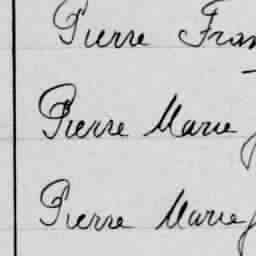 Pierre Fran
Pierre Marie
Pierre Marie